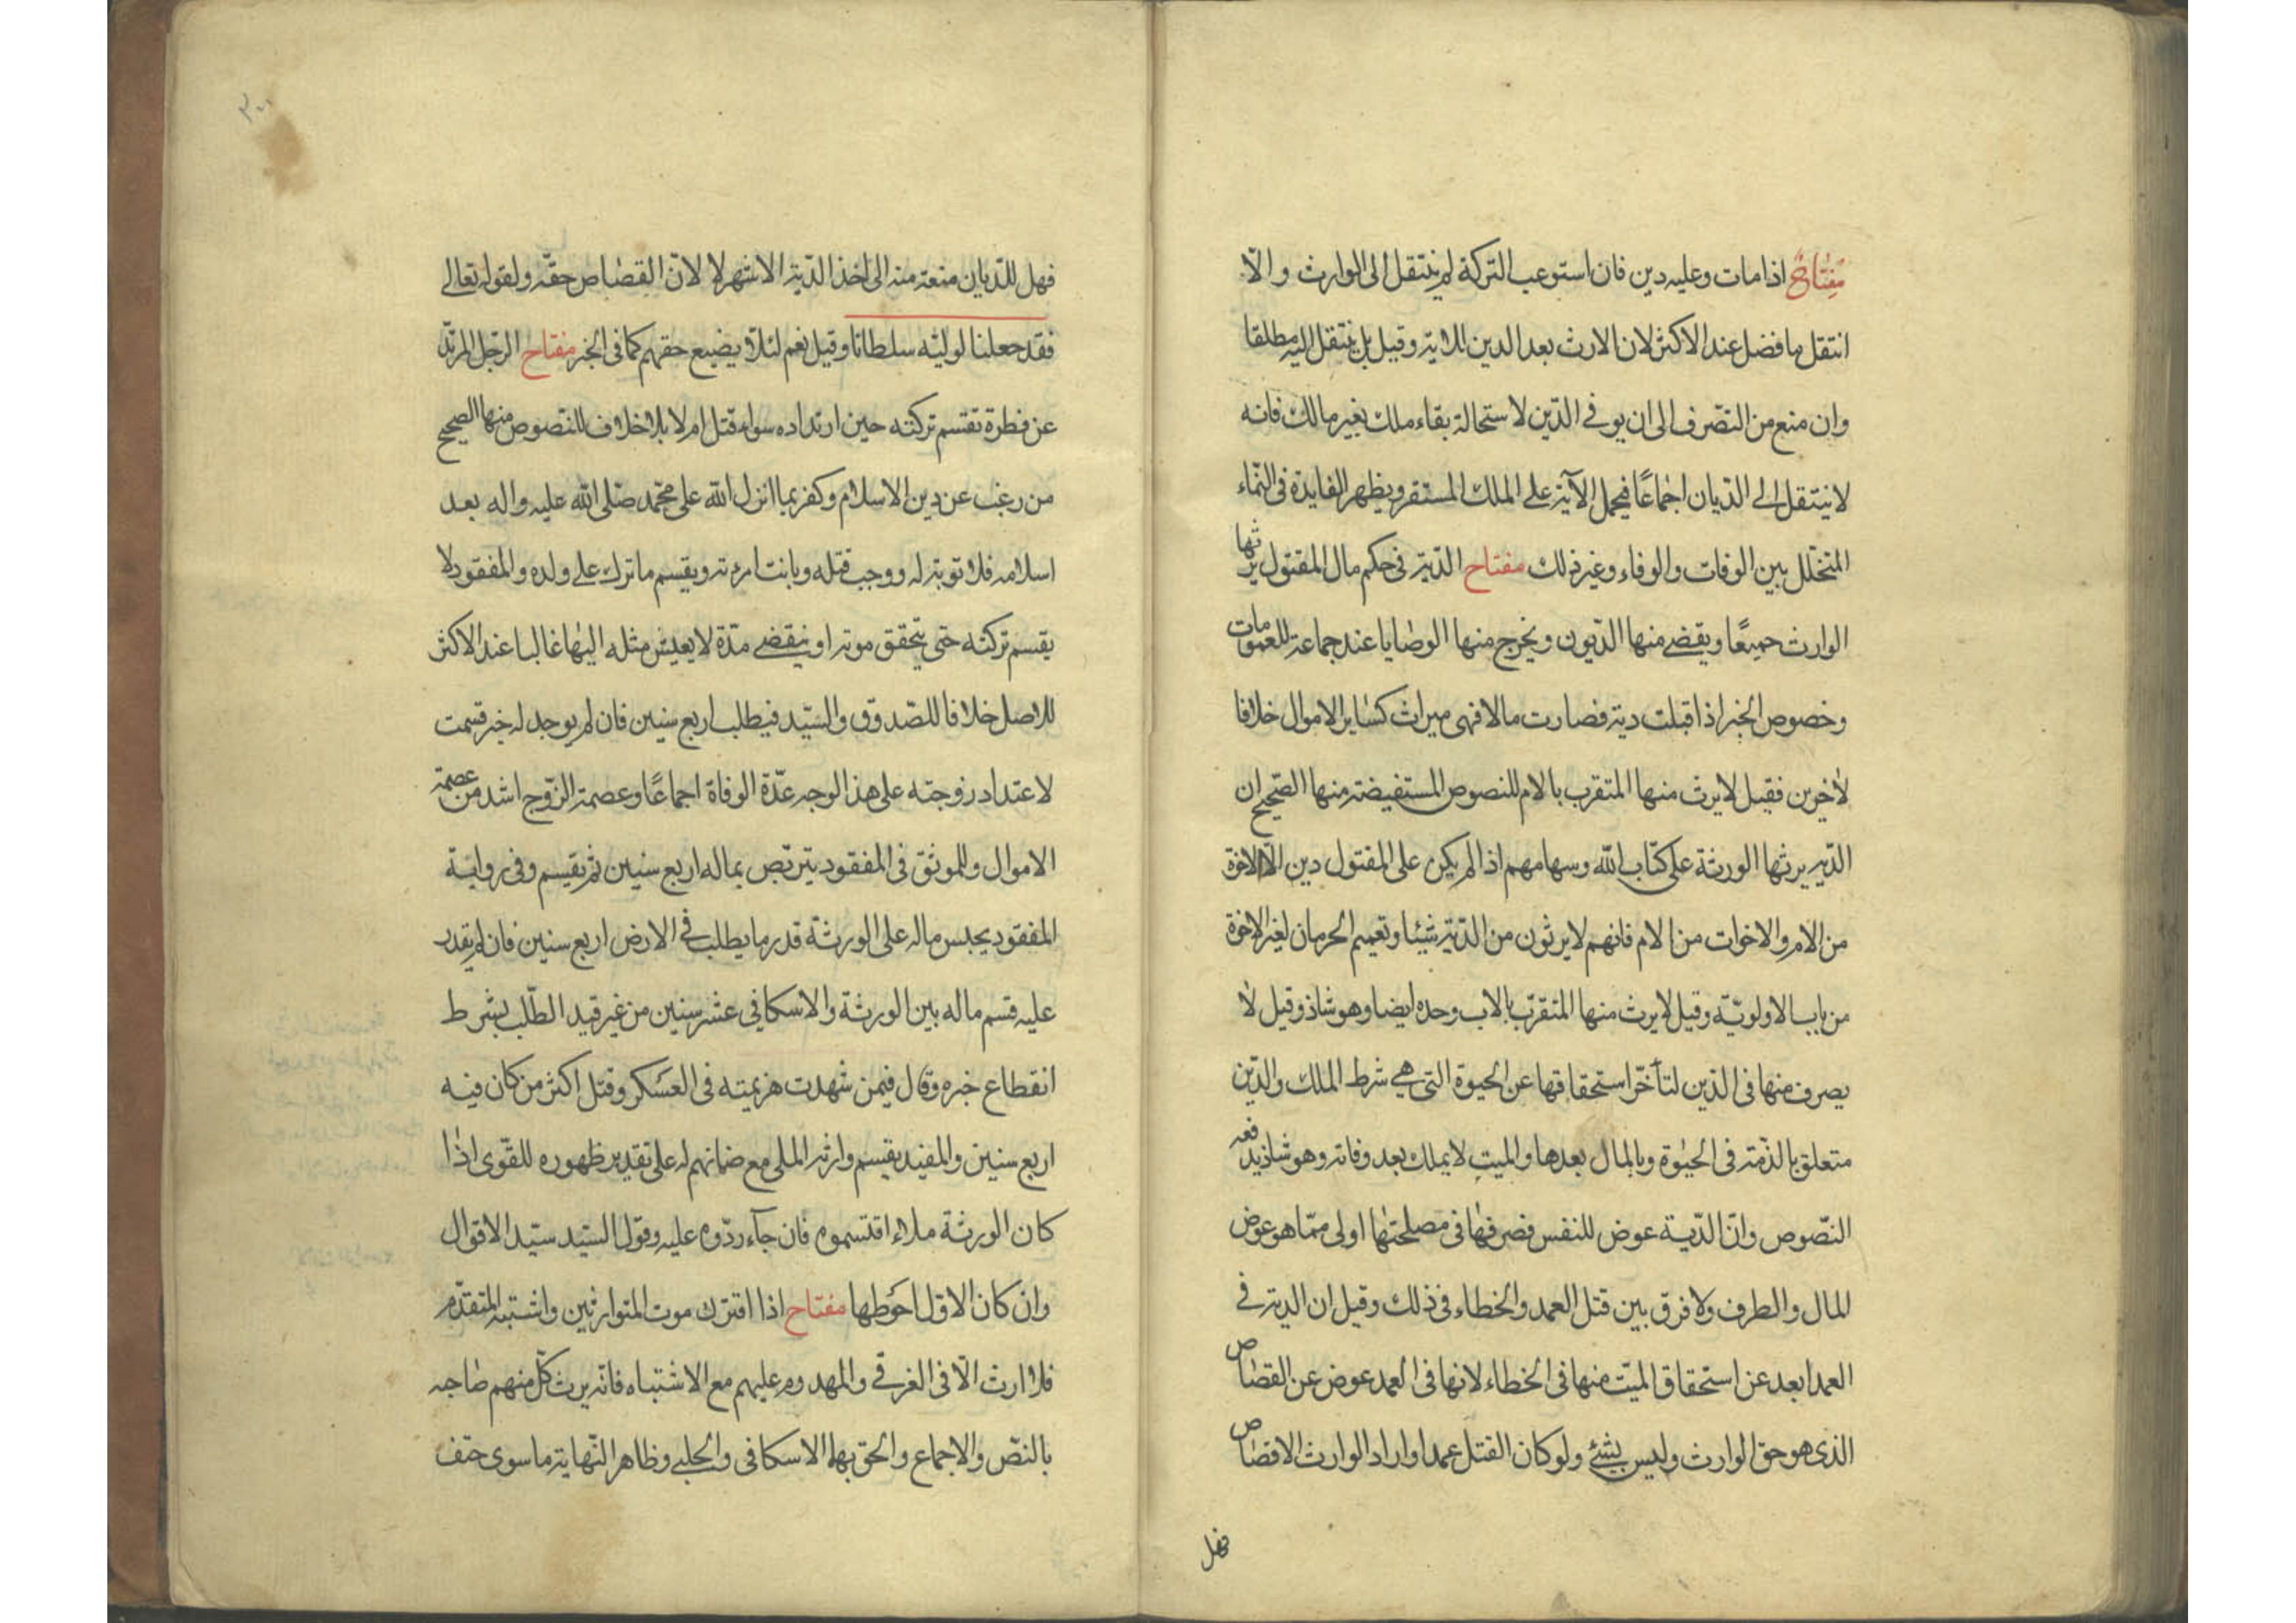 مفتاح اذا مات وعليه دين فان استوعب التركة لم ينتقل الى الوارث والّا
انتقل ما فضل عند الاكثر لان الارث بعد الدين للاية وقيل بل ينتقل اليه مطلقا
وان منع من التصّرف الى ان يوفى الدّين لاستحالة بقاء ملك بغير مالك فانه
لا ينتقل الى الديان اجماعًا فيحمل الآية على الملك المستقر ويظهر الفايدة فى النمّاء
المتخلّل بين الوفات والوفاء وغير ذلك مفتاح الدّية فى حكم مال المقتول يرثها
الوارث جميعًا ويقضى منها الدّيون ويخرج منها الوصايا عند جماعة للعمومات
وخصوص الخبر اذا قبلت دية فصارت مالا فهى ميراث كساير الاموال خلافا
لاخرين فقيل لا يرث منها المتقرب بالام للنصوص المستفيضة منها الصّحيح ان
الدّية يرثها الورثة على كتاب الله وسهامهم اذا لم يكن على المقتول دين الّا الاخوة
من الام والاخوات من الام فانهم لا يرثون من الدّية شيئا وتعميم الحرمان لغير الاخوة
من باب الاولويّة وقيل لا يرث منها المتقرّب بالاب وحده ايضا وهو شاذ وقيل لا
يصرف منها فى الدّين لتأخّر استحقاقها عن الحيوة التى هى شرط الملك والدّين
متعلق بالذّمة فى الحيوة وبالمال بعدها والميت لا يملك بعد وفاته وهو شاذ يدفعه
النّصوص وانّ الدّية عوض للنفس فصرفها فى مصلحتها اولى ممّا هو عوض
المال والطرف ولا فرق بين قتل العمد والخطاء فى ذلك وقيل ان الدية فى
العمد ابعد عن استحقاق الميّت منها فى الخطاء لانها فى العمد عوض عن القصاص
الذى هو حق الوارث وليس بشئ ولو كان القتل عمدا واراد الوارث الاقصاص
فهل
فهل للدّيان منعه منه الى اخذ الدّية الاشهر لا لانّ القصاص حقّه ولقوله تعالى
فقد جعلنا لوليّه سلطانا وقيل نعم لئلّا يضيع حقهم كما فى الخبر مفتاح الرّجل المرتدّ
عن فطرة تقتسم تركته حين ارتداده سواء قتل ام لا بلا خلاف للنّصوص منها الصحيح
من رغب عن دين الاسلام وكفر بما انزل الله على محمّد صلّى الله عليه واله بعد
اسلامه فلا توبة له ووجب قتله وبانت امرءته ويقسم ما ترك على ولده والمفقود لا
يقسم تركته حتى يتحقق موته او ينقضى مدّة لا يعيش مثله اليها غالبا عند الاكثر
للاصل خلافا للصّدوق والسّيد فيطلب اربع سنين فان لم يوجد له خبر قسمت
لاعتداد زوجته على هذا الوجه عدّة الوفاة اجماعًا وعصمة الزّوج اشد من عصمة
الاموال وللموثق فى المفقود يتربّص بماله اربع سنين ثم يقسم وفى رواية
المفقود يحبس ماله على الورثة قدر ما يطلب فى الارض اربع سنين فان لم يقدر
عليه قسم ماله بين الورثة والاسكافى عشر سنين من غير قيد الطّلب بشرط
انقطاع خبره وقال فيمن شهدت هزيمته فى العسكر وقتل اكثر من كان فيه
اربع سنين والمفيد يقسم وارثه الملى مع ضمانهم له على تقدير ظهوره للقوى اذا
كان الورثة ملاء اقتسموه فان جآء ردّوه عليه وقول السيّد سيّد الاقوال
وان كان الاوّل احوطها مفتاح اذا اقترن موت المتوارثين واشتبه المتقدّم
فلا ارث الّا فى الغرقى والمهدوم عليهم مع الاشتباه فانّه يرث كل منهم صاحبه
بالنصّ والاجماع والحق بهما الاسكافى والحلبى وظاهر النّهاية ما سوى حتف